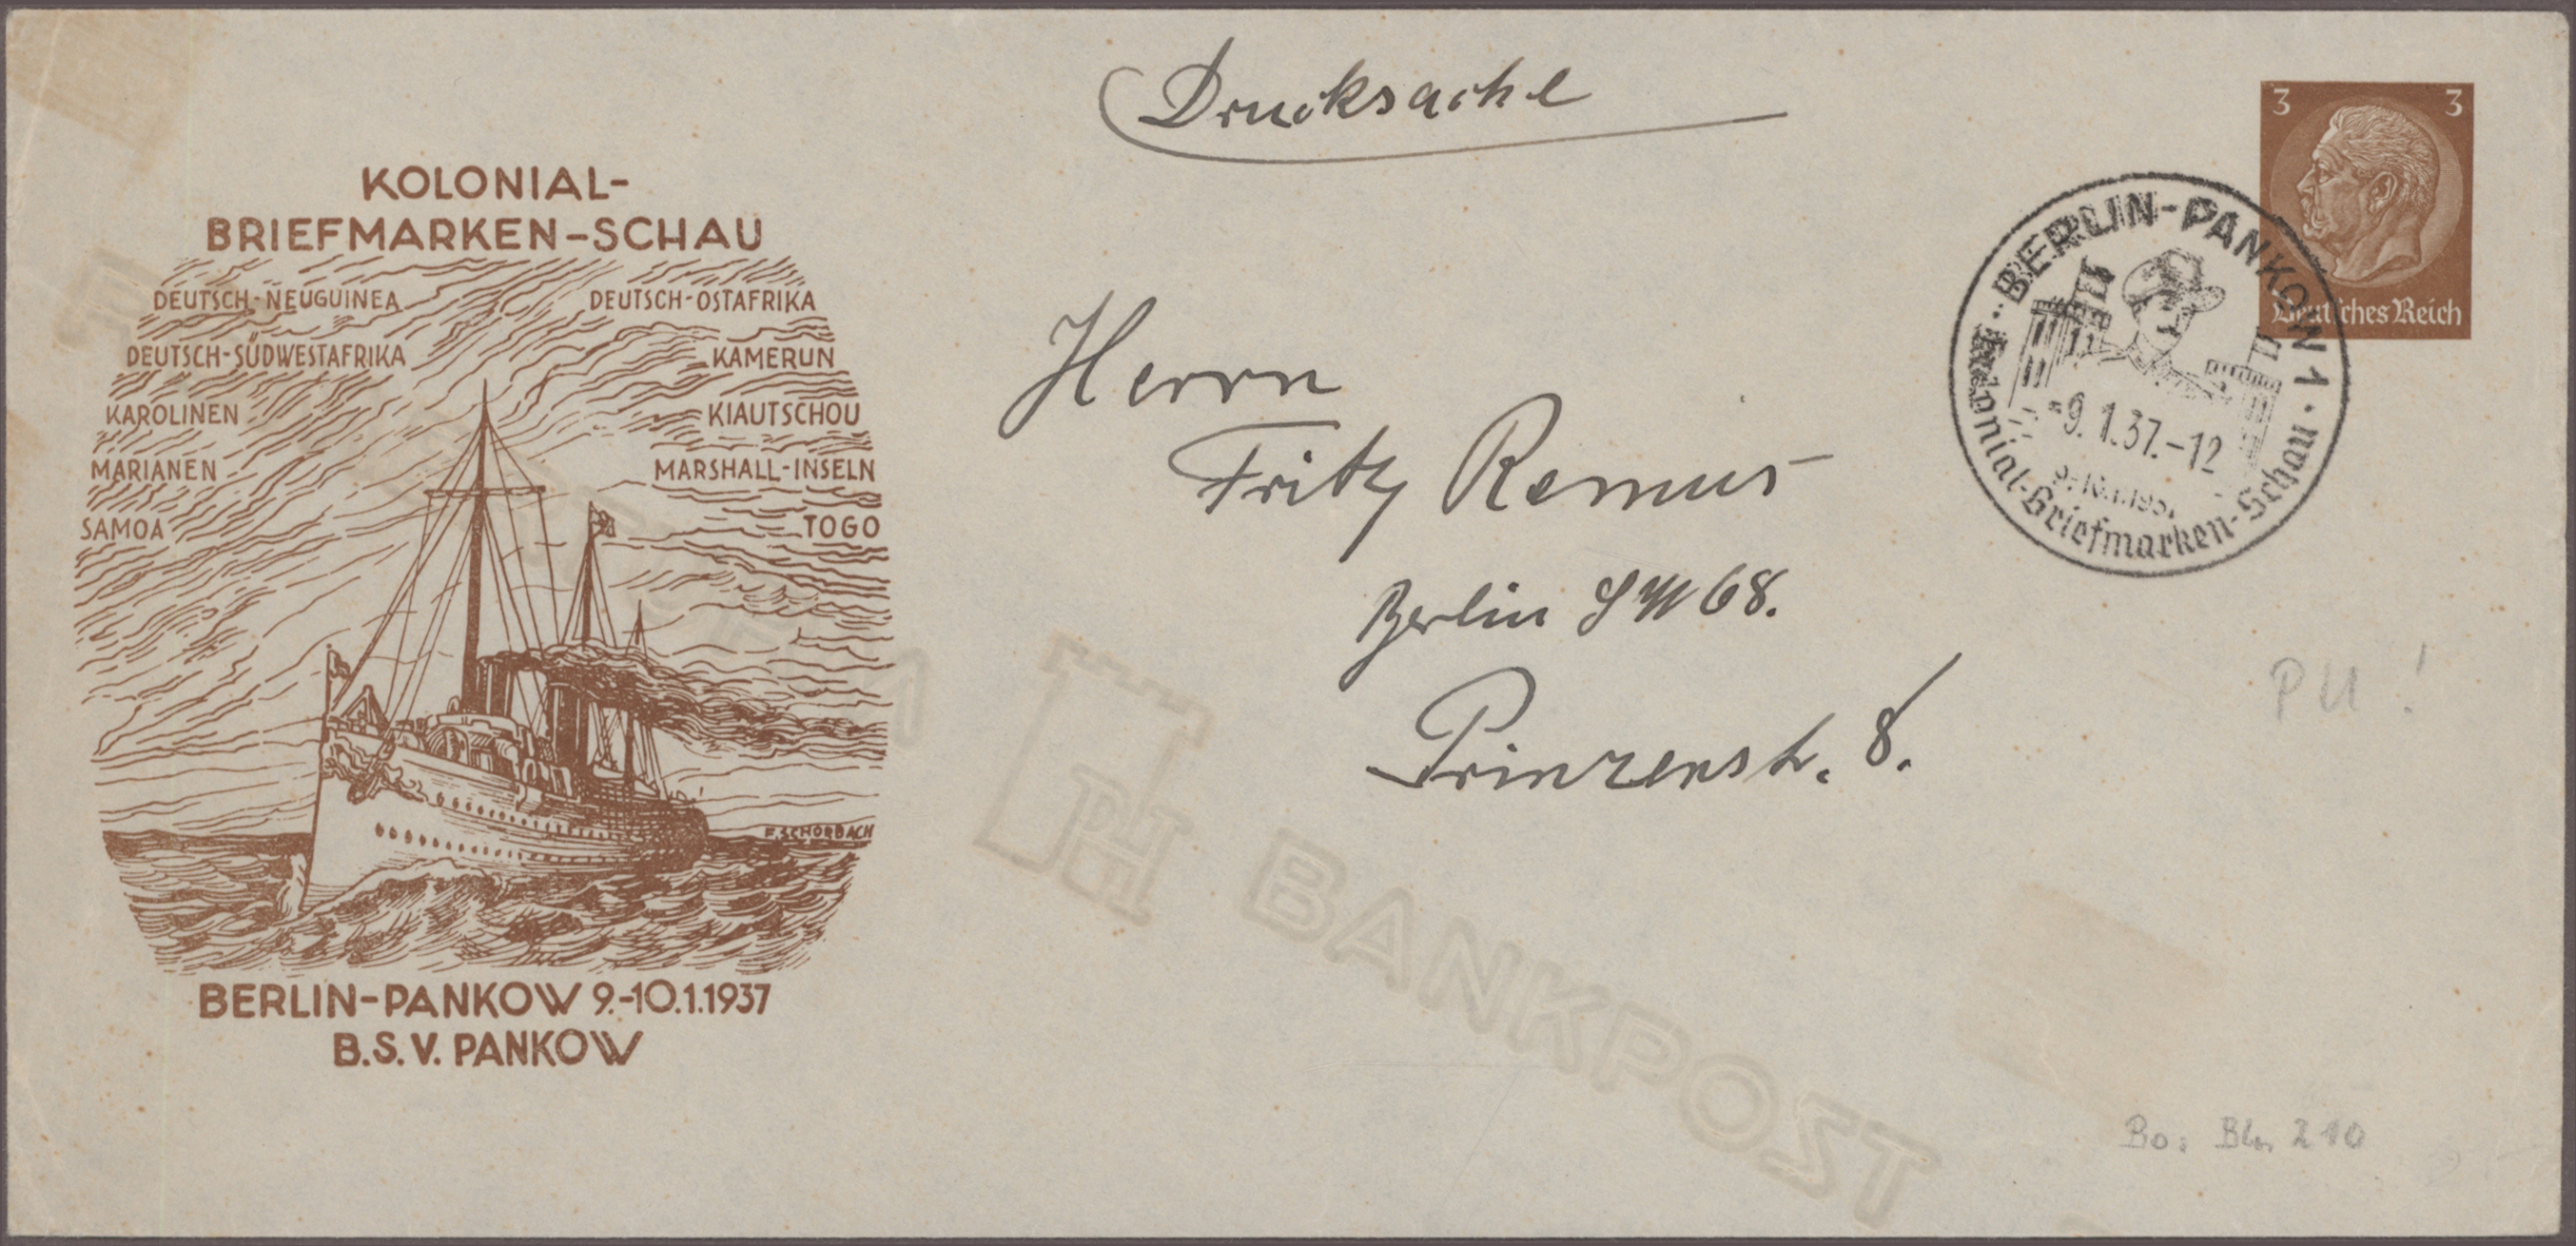 Drucksache
3 3
Deutsches Reich
KOLONIAL-
BRIEFMARKEN-SCHAU
DEUTSCH-NEUGUINEA
DEUTSCH-OSTAFRIKA
DEUTSCH-SÜDWESTAFRIKA
KAMERUN
KAROLINEN
KIAUTSCHOU
MARIANEN
MARSHALL-INSELN
SAMOA
TOGO
F. SCHORBACH
BERLIN-PANKOW 9.-10.1.1937
B.S.V. PANKOW
BERLIN-PANKOW 1
-9.1.37.-12
9.-10.1.1937
Kolonial-Briefmarken-Schau
Herrn
Fritz Remus
Berlin SW 68.
Prinzenstr. 8.
PU!
BANKPOST
Bo: 210